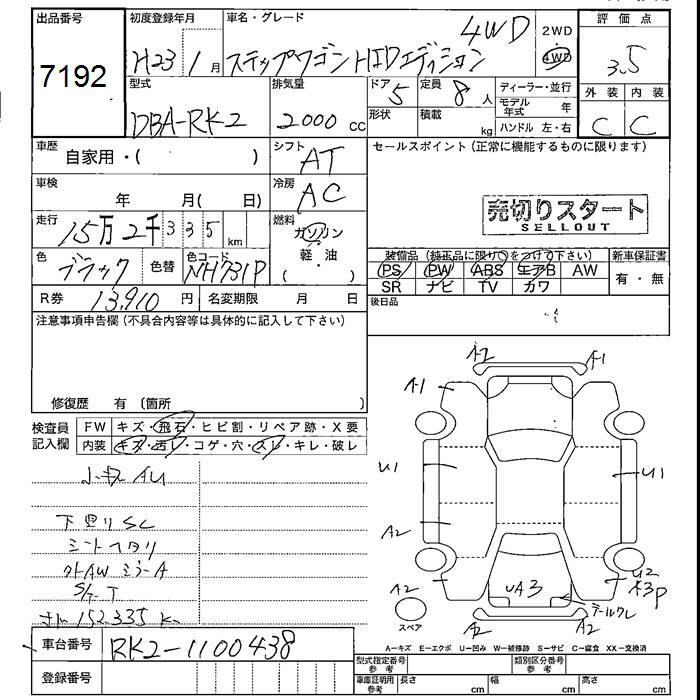 出品番号 初度登録年月 車名・グレード 評価点
7192 H23年1月 ステップワゴン HIDエディション 4WD 2WD 4WD 3.5
型式 排気量 ドア 5 定員 8人 ディーラー・並行 外装 内装
DBA-RK2 2000cc 形状 積載 kg モデル年式 年 ハンドル 左・右 C C
車歴 自家用・( ) シフト AT セールスポイント(正常に機能するものに限ります)
車検 年 月( 日) 冷房 AC
売切りスタート
SELLOUT
走行 15万2千335km 燃料 ガソリン 軽・油 ( )
色 ブラック 色替 色コード NH731P 装備品(純正品に限り○をつけて下さい) 新車保証書
PS PW ABS エアB AW 有・無
SR ナビ TV カワ
R券 13,910円 名変期限 月 日 後日品
注意事項申告欄(不具合内容等は具体的に記入して下さい)
修復歴 有 (箇所 )
検査員記入欄 FW キズ・飛石・ヒビ割・リペア跡・X要
内装 キズ・汚レ・コゲ・穴・スレ・キレ・破レ
小キズAU
下廻りSC
シートヘタリ
外AWミラーA
S/T-T
さm 152.335K
A2 A-1
A-1
U1 U1
A2
A2 UA3 U2
X3P
テールワレ
スペア A2 A2
A-キズ E-エクボ U-凹み W-補修跡 S-サビ C-腐食 XX-交換済
車台番号 RK2-1100438 型式指定番号 参考 類別区分番号 参考
登録番号 車庫証明用 参考 長さ cm 幅 cm 高さ cm